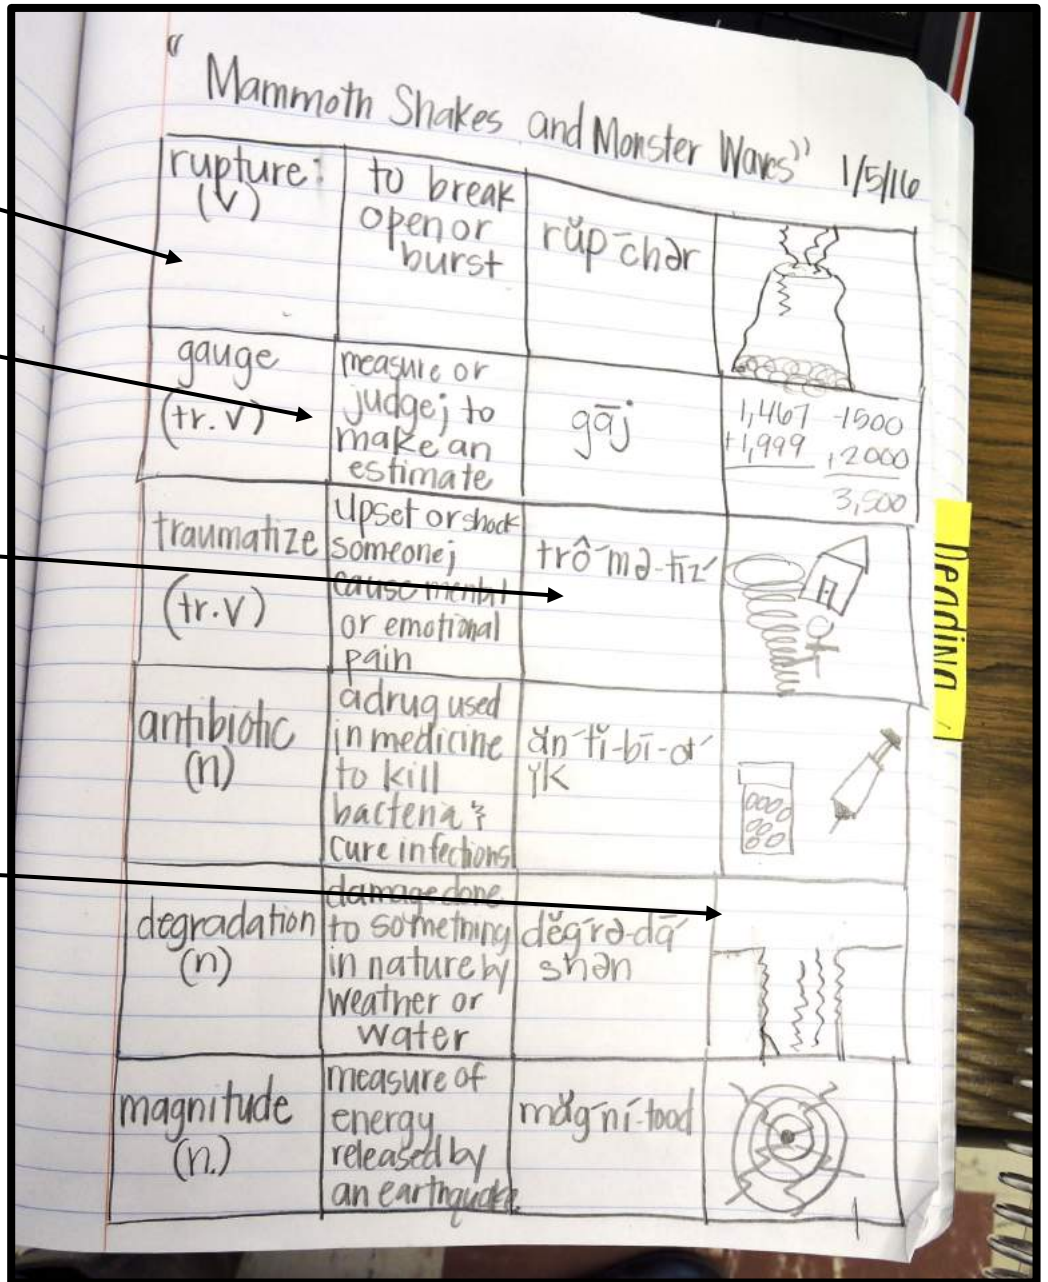 "Mammoth Shakes and Monster Waves" 1/5/16
rupture:
(v)
to break
open or
burst
rŭp-chər
gauge
(tr. v)
measure or
judge; to
make an
estimate
gāj
1,467 -1500
+1,999 +2000
3,500
traumatize
(tr. v)
upset or shock
someone;
cause mental
or emotional
pain
trô-mə-tīz
antibiotic
(n)
a drug used
in medicine
to kill
bacteria &
cure infections
ăn-tĭ-bī-ot
ĭk
degradation
(n)
damage done
to something
in nature by
weather or
water
dĕg-rə-dā
shən
magnitude
(n.)
measure of
energy
released by
an earthquake.
măg-nĭ-tood
Reading